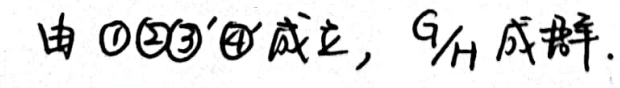 由 ①②③′④′ 成立, G/H 成群.